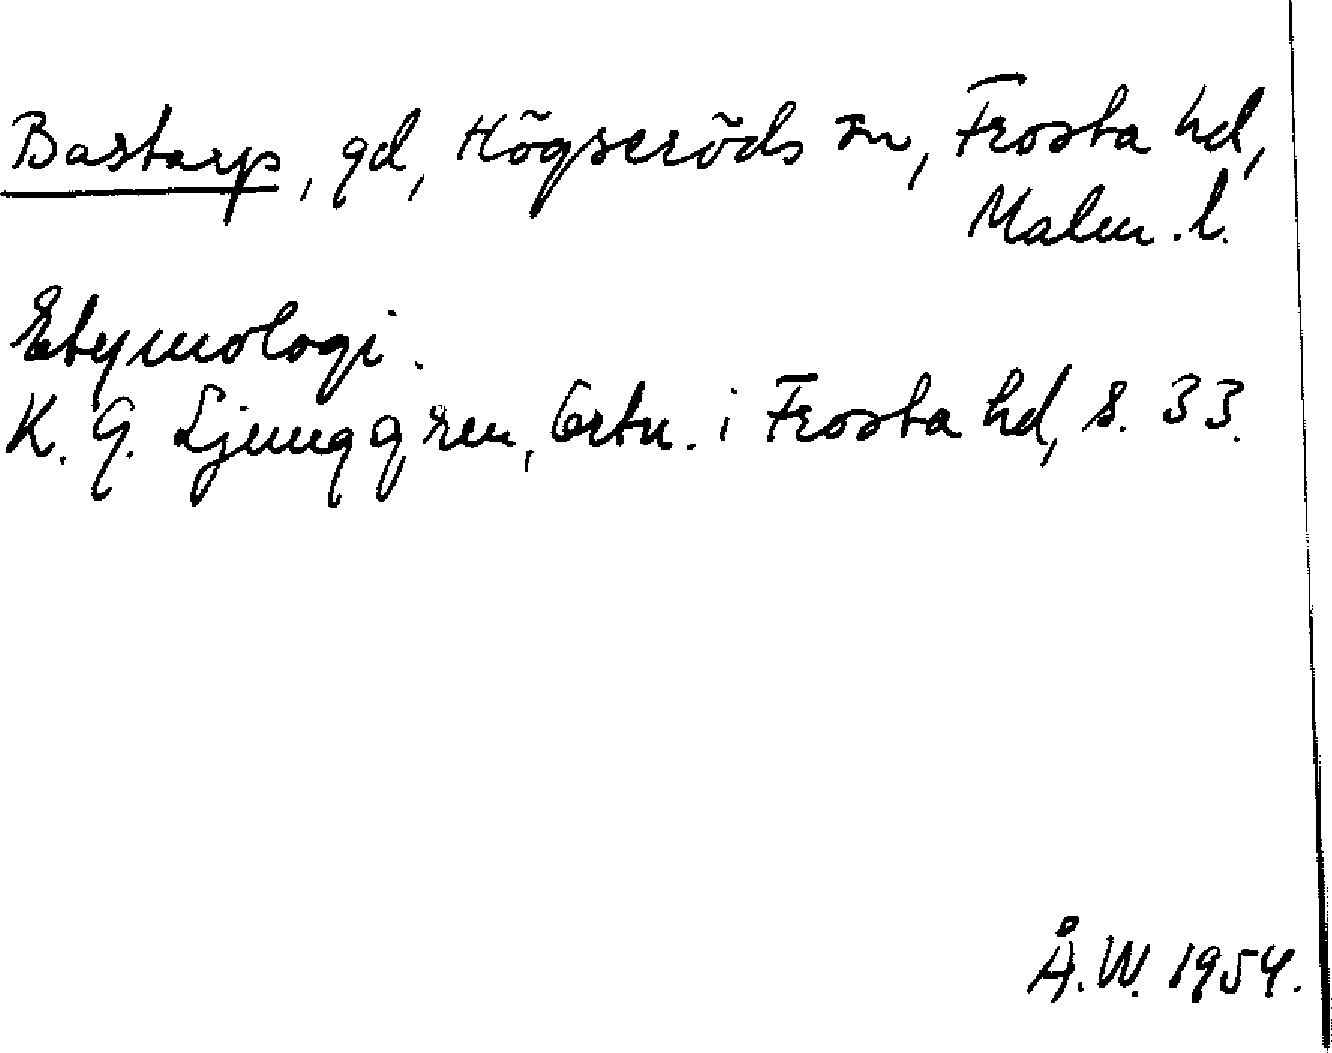 Bastarp, gd, Högseröds sn, Frosta hd,
Malm. l.
Etymologi.
K. G. Ljunggren, Ortn. i Frosta hd, s. 33.
Å. W. 1954.